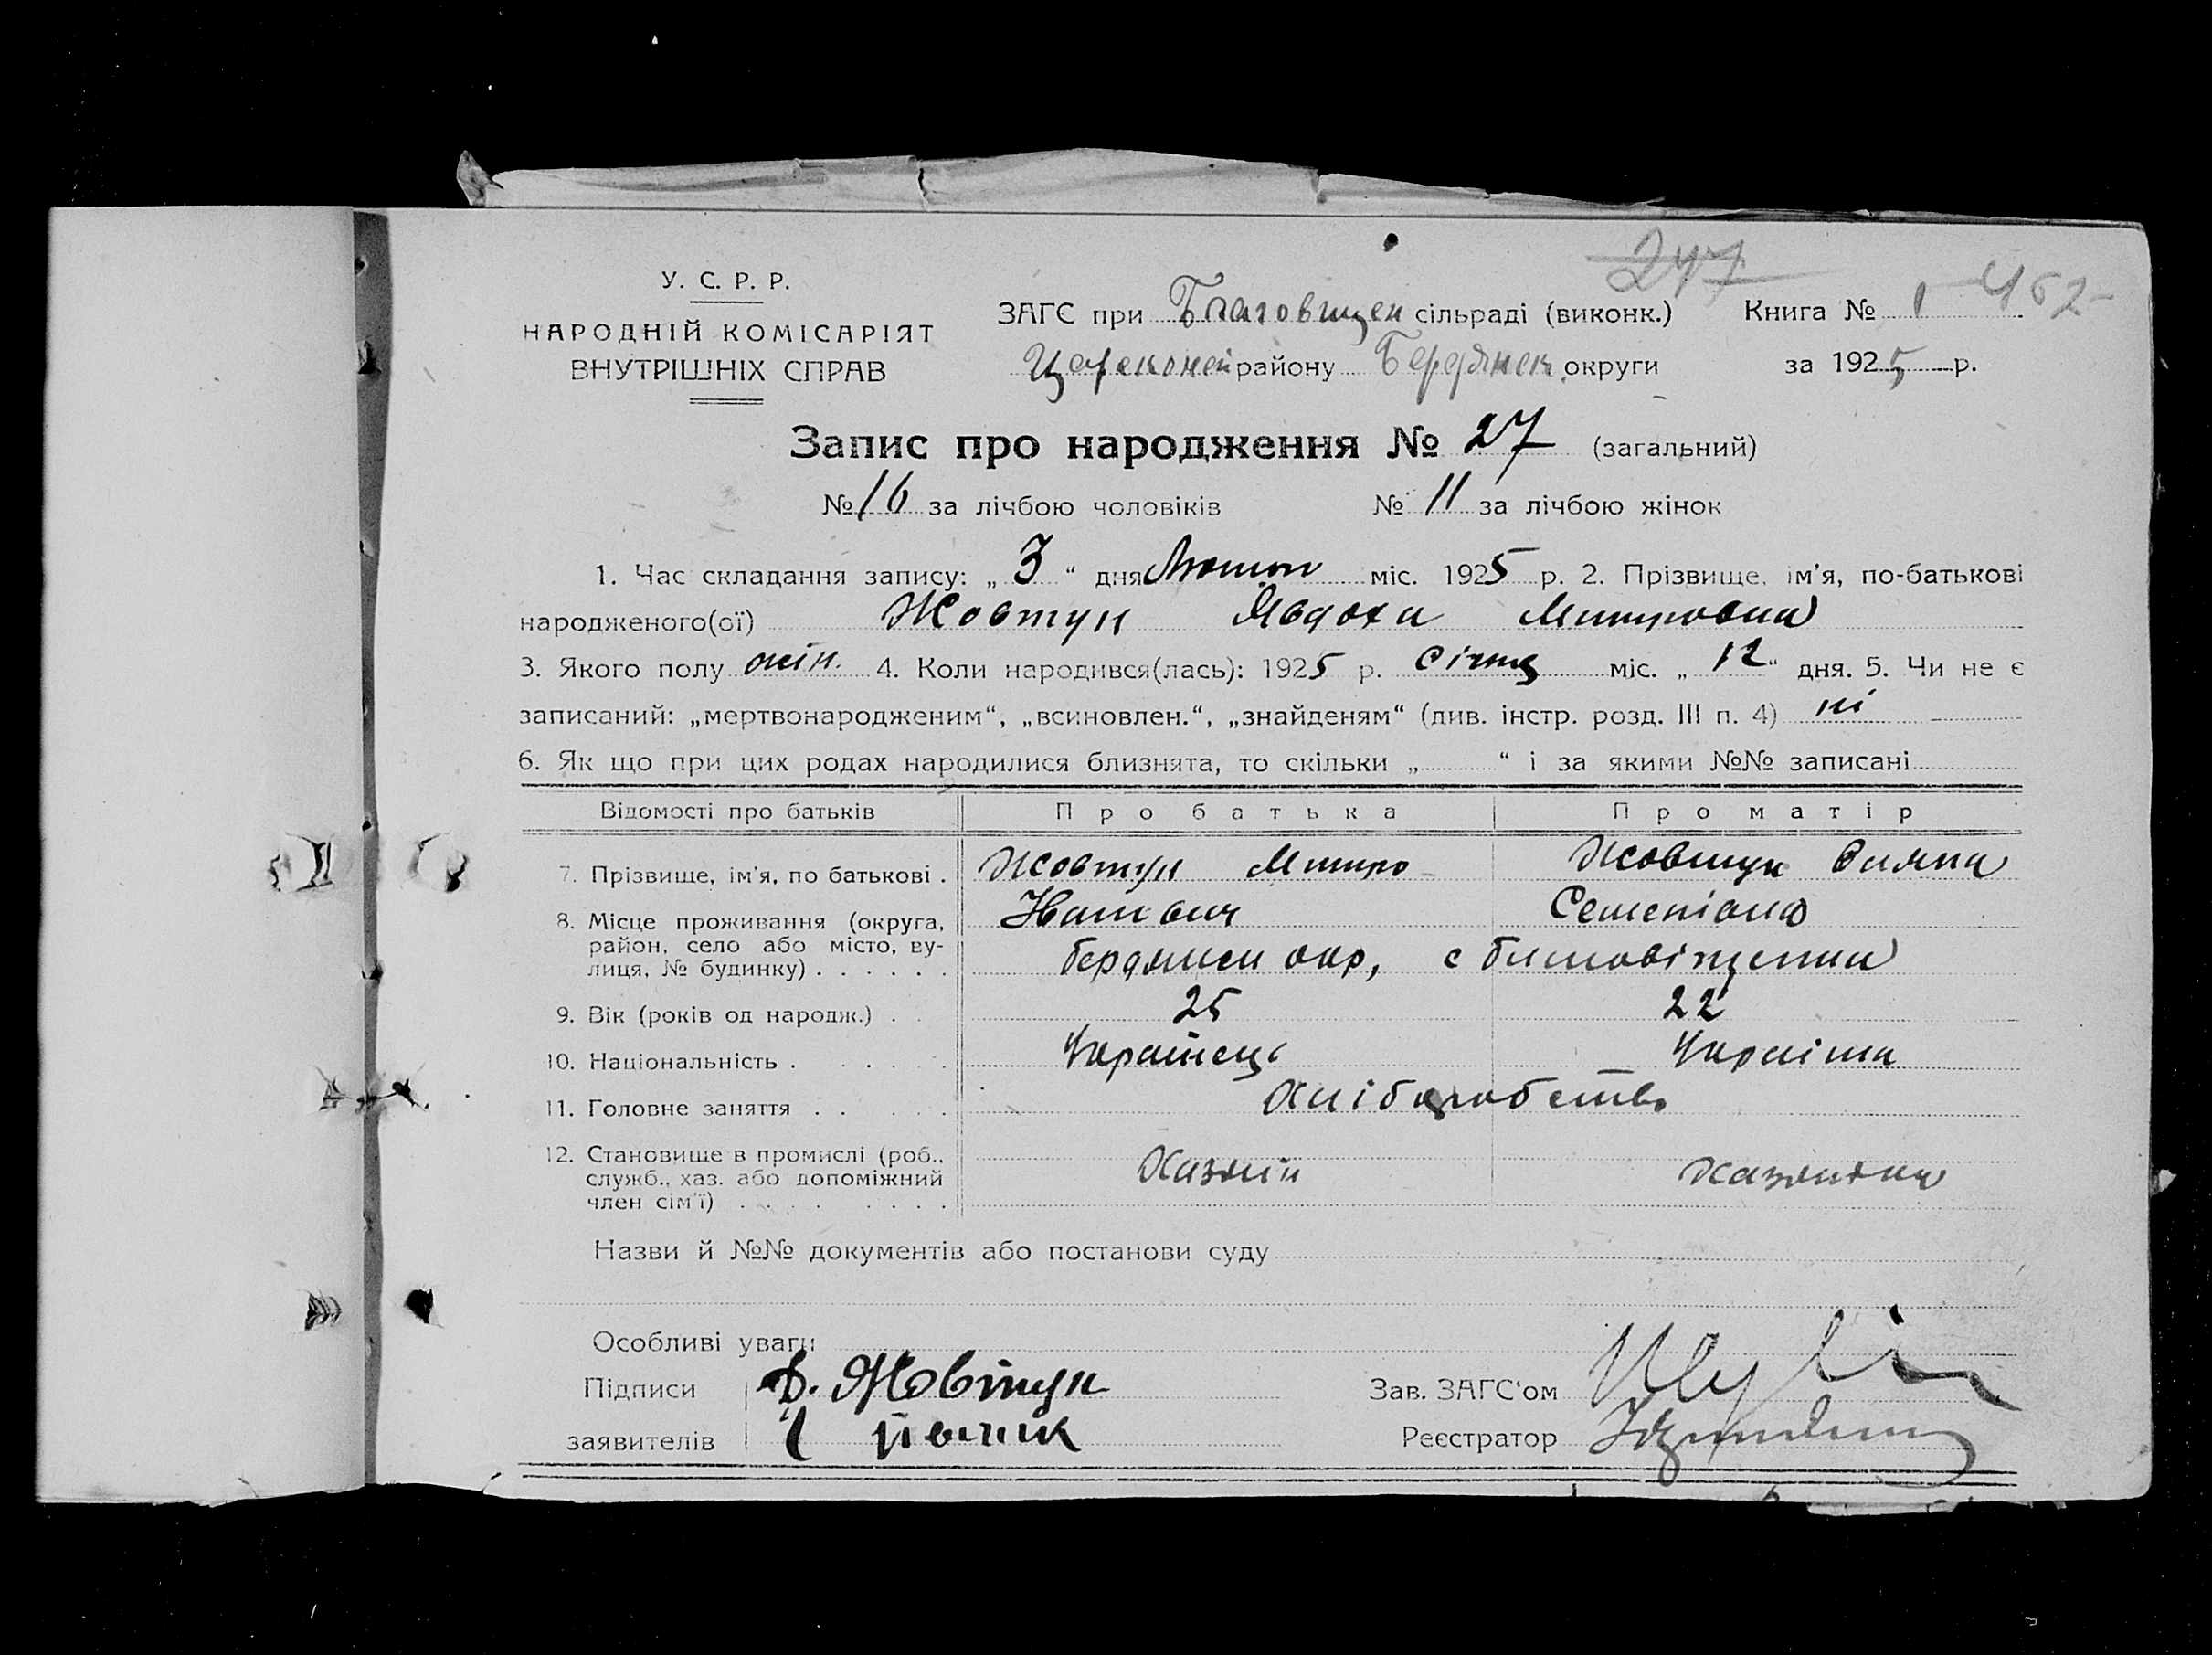 247
У. С. Р. Р.
НАРОДНІЙ КОМІСАРІЯТ
ВНУТРІШНІХ СПРАВ
ЗАГС при Благовищен сільраді (виконк.) Книга № 1 462
району Бердянск. округи за 1925 р.
Запис про народження № 27 (загальний)
№ 16 за лічбою чоловіків № 11 за лічбою жінок
1. Час складання запису: „ 3 “ дня Лютого міс. 1925 р. 2. Прізвище, ім'я, по-батькові
народженого(ої) Жовтун Явдоха Митровна
3. Якого полу жін. 4. Коли народився(лась): 1925 р. Січня міс. „ 12 “ дня. 5. Чи не є
записаний: „мертвонародженим“, „всиновлен.“, „знайденям“ (див. інстр. розд. III п. 4) ні
6. Як що при цих родах народилися близнята, то скільки „ “ і за якими №№ записані
Відомості про батьків Про батька Про матір
7. Прізвище, ім'я, по батькові . Жовтун Митро Жовтун
8. Місце проживання (округа, Иванович Семенівна
район, село або місто, ву-
лиця, № будинку) . . . . . . Бердянськ окр, с Благовіщенка
9. Вік (років од народж.) . . 25 22
10. Національність . . . . . . Українець Українка
11. Головне заняття . . . . . Хліборобство
12. Становище в промислі (роб.,
служб., хаз. або допоміжний Хазяїн Хазяйка
член сім'ї) . . . . . . . .
Назви й №№ документів або постанови суду
Особливі уваги
Підписи Д. Жовтун Зав. ЗАГС'ом
заявителів Реєстратор